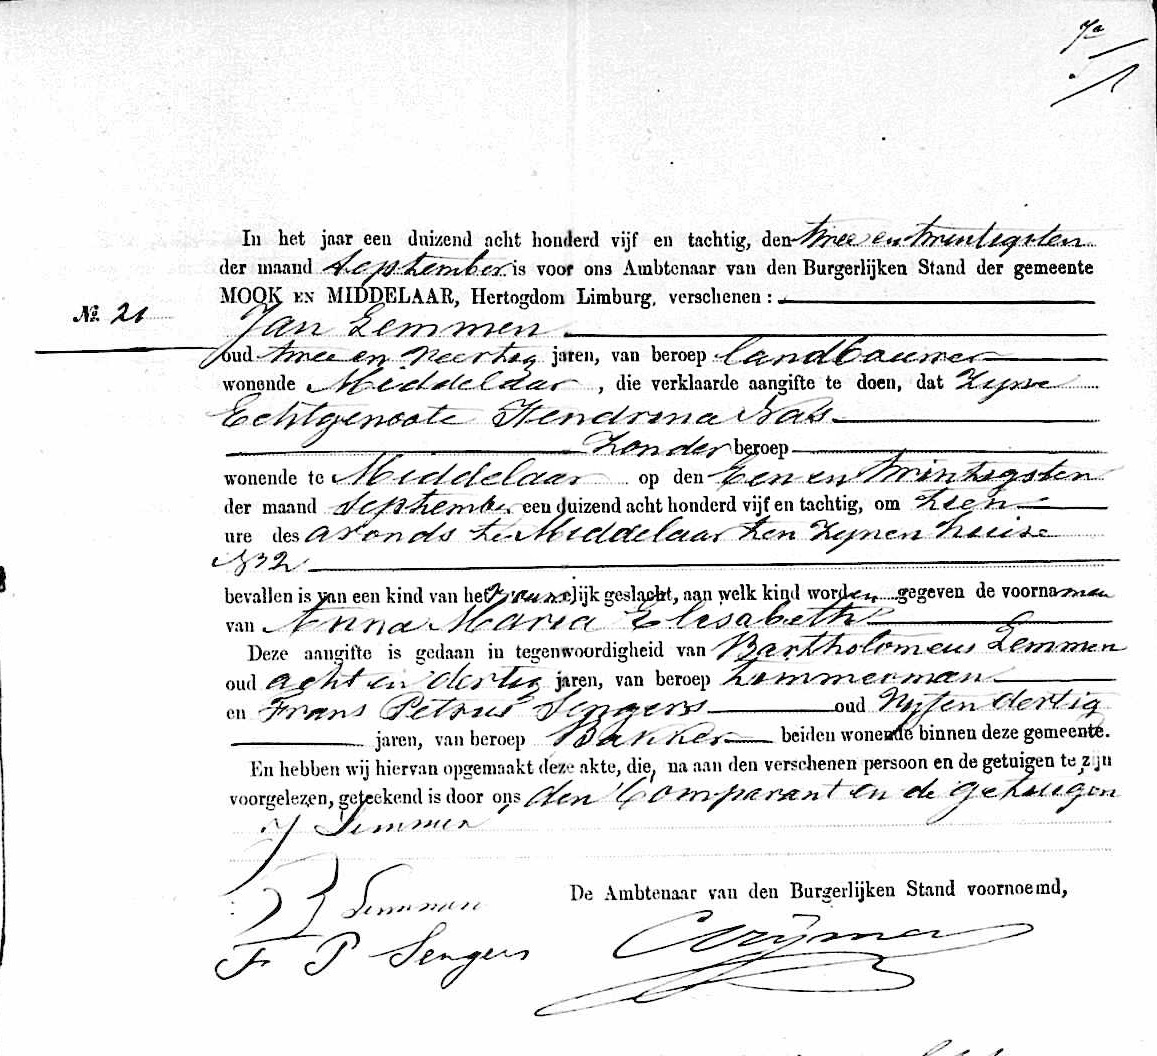 In het jaar een duizend acht honderd vijf en tachtig, den twee en twintigsten
der maand September is voor ons Ambtenaar van den Burgerlijken Stand der gemeente
MOOK EN MIDDELAAR, Hertogdom Limburg, verschenen :
No. 21
Jan Lemmen
oud twee en veertig jaren, van beroep landbouwer
wonende Middelaar, die verklaarde aangifte te doen, dat Zyne
Echtgenoote Hendrina Nas
Zonder beroep
wonende te Middelaar op den Een en twintigsten
der maand September een duizend acht honderd vijf en tachtig, om tien
ure des avonds te Middelaar ten Zynen huize
No 32
bevallen is van een kind van het vrouwelijk geslacht, aan welk kind worden gegeven de voornamen
van Anna Maria Elisabeth
Deze aangifte is gedaan in tegenwoordigheid van Bartholomeus Lemmen
oud acht en dertig jaren, van beroep timmerman
en Frans Petrus Sengers oud Vyf en dertig
jaren, van beroep Bakker beiden wonende binnen deze gemeente.
En hebben wij hiervan opgemaakt deze akte, die, na aan den verschenen persoon en de getuigen te zijn
voorgelezen, geteekend is door ons den Comparant en de getuigen
J Lemmen
B Lemmen
De Ambtenaar van den Burgerlijken Stand voornoemd,
F P Sengers